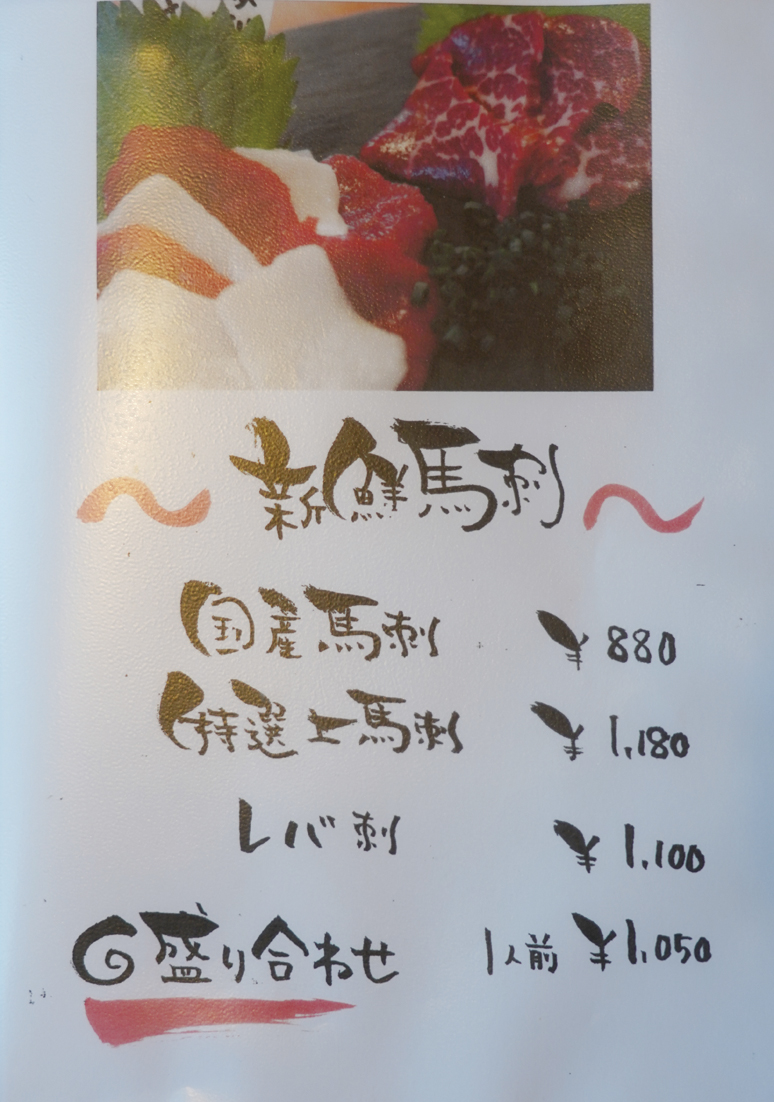 ～新鮮馬刺～
国産馬刺 ¥880
特選上馬刺 ¥1,180
レバ刺 ¥1,100
◎盛り合わせ 1人前 ¥1,050